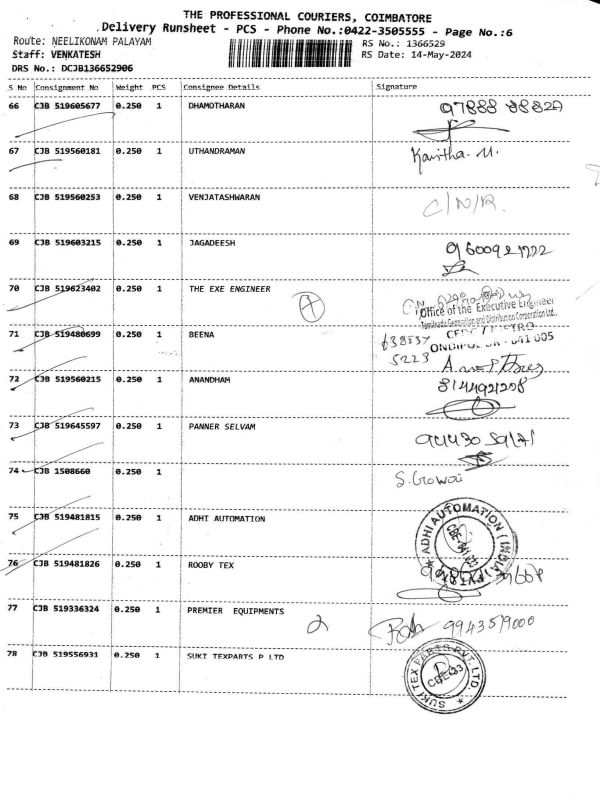 THE PROFESSIONAL COURIERS, COIMBATORE
Delivery Runsheet - PCS - Phone No.:0422-3505555 - Page No.:6
Route: NEELIKONAM PALAYAM RS No.: 1366529
Staff: VENKATESH RS Date: 14-May-2024
DRS No.: DCJB136652906
S No Consignment No Weight PCS Consignee Details Signature
66 CJB 519605677 0.250 1 DHAMOTHARAN 97888 88820
67 CJB 519560181 0.250 1 UTHANDRAMAN Kavitha. M.
68 CJB 519560253 0.250 1 VENJATASHWARAN C/N/R.
69 CJB 519603215 0.250 1 JAGADEESH 9600921222
70 CJB 519623402 0.250 1 THE EXE ENGINEER
Office of the Executive Engineer
Tamilnadu Generation and Distribution Corporation Ltd.,
71 CJB 519480699 0.250 1 BEENA 638537
5223
641 005
72 CJB 519560215 0.250 1 ANANDHAM 8144921208
73 CJB 519645597 0.250 1 PANNER SELVAM 94430 59171
74 CJB 1508660 0.250 1 S. Gowri
75 CJB 519481815 0.250 1 ADHI AUTOMATION
ADHI AUTOMATION (INDIA)
76 CJB 519481826 0.250 1 ROOBY TEX
77 CJB 519336324 0.250 1 PREMIER EQUIPMENTS 2 9943579000
78 CJB 519556931 0.250 1 SUKI TEXPARTS P LTD
SUKI TEX PARTS PVT. LTD.